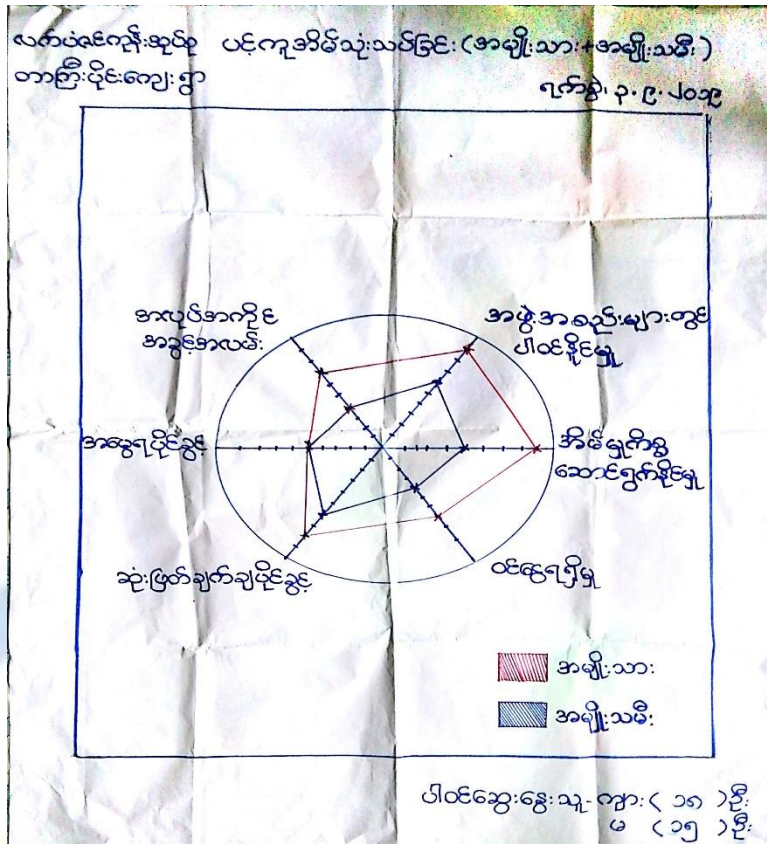 လက်ပံဇင်ကုန်းအုပ်စု ပင့်ကူအိမ်သုံးသပ်ခြင်း (အမျိုးသား+အမျိုးသမီး)
တာကြီးပိုင်းကျေးရွာ
ရက်စွဲ၊ ၃.၉.၂၀၁၉
အလုပ်အကိုင်
အခွင့်အလမ်း
အဖွဲ့အစည်းများတွင်
ပါဝင်နိုင်မှု
အမွေရပိုင်ခွင့်
အိမ်မှုကိစ္စ
ဆောင်ရွက်နိုင်မှု
ဆုံးဖြတ်ချက်ချပိုင်ခွင့်
ဝင်ငွေရရှိမှု
အမျိုးသား
အမျိုးသမီး
ပါဝင်ဆွေးနွေးသူ-ကျား (၁၈) ဦး
မ (၁၅) ဦး